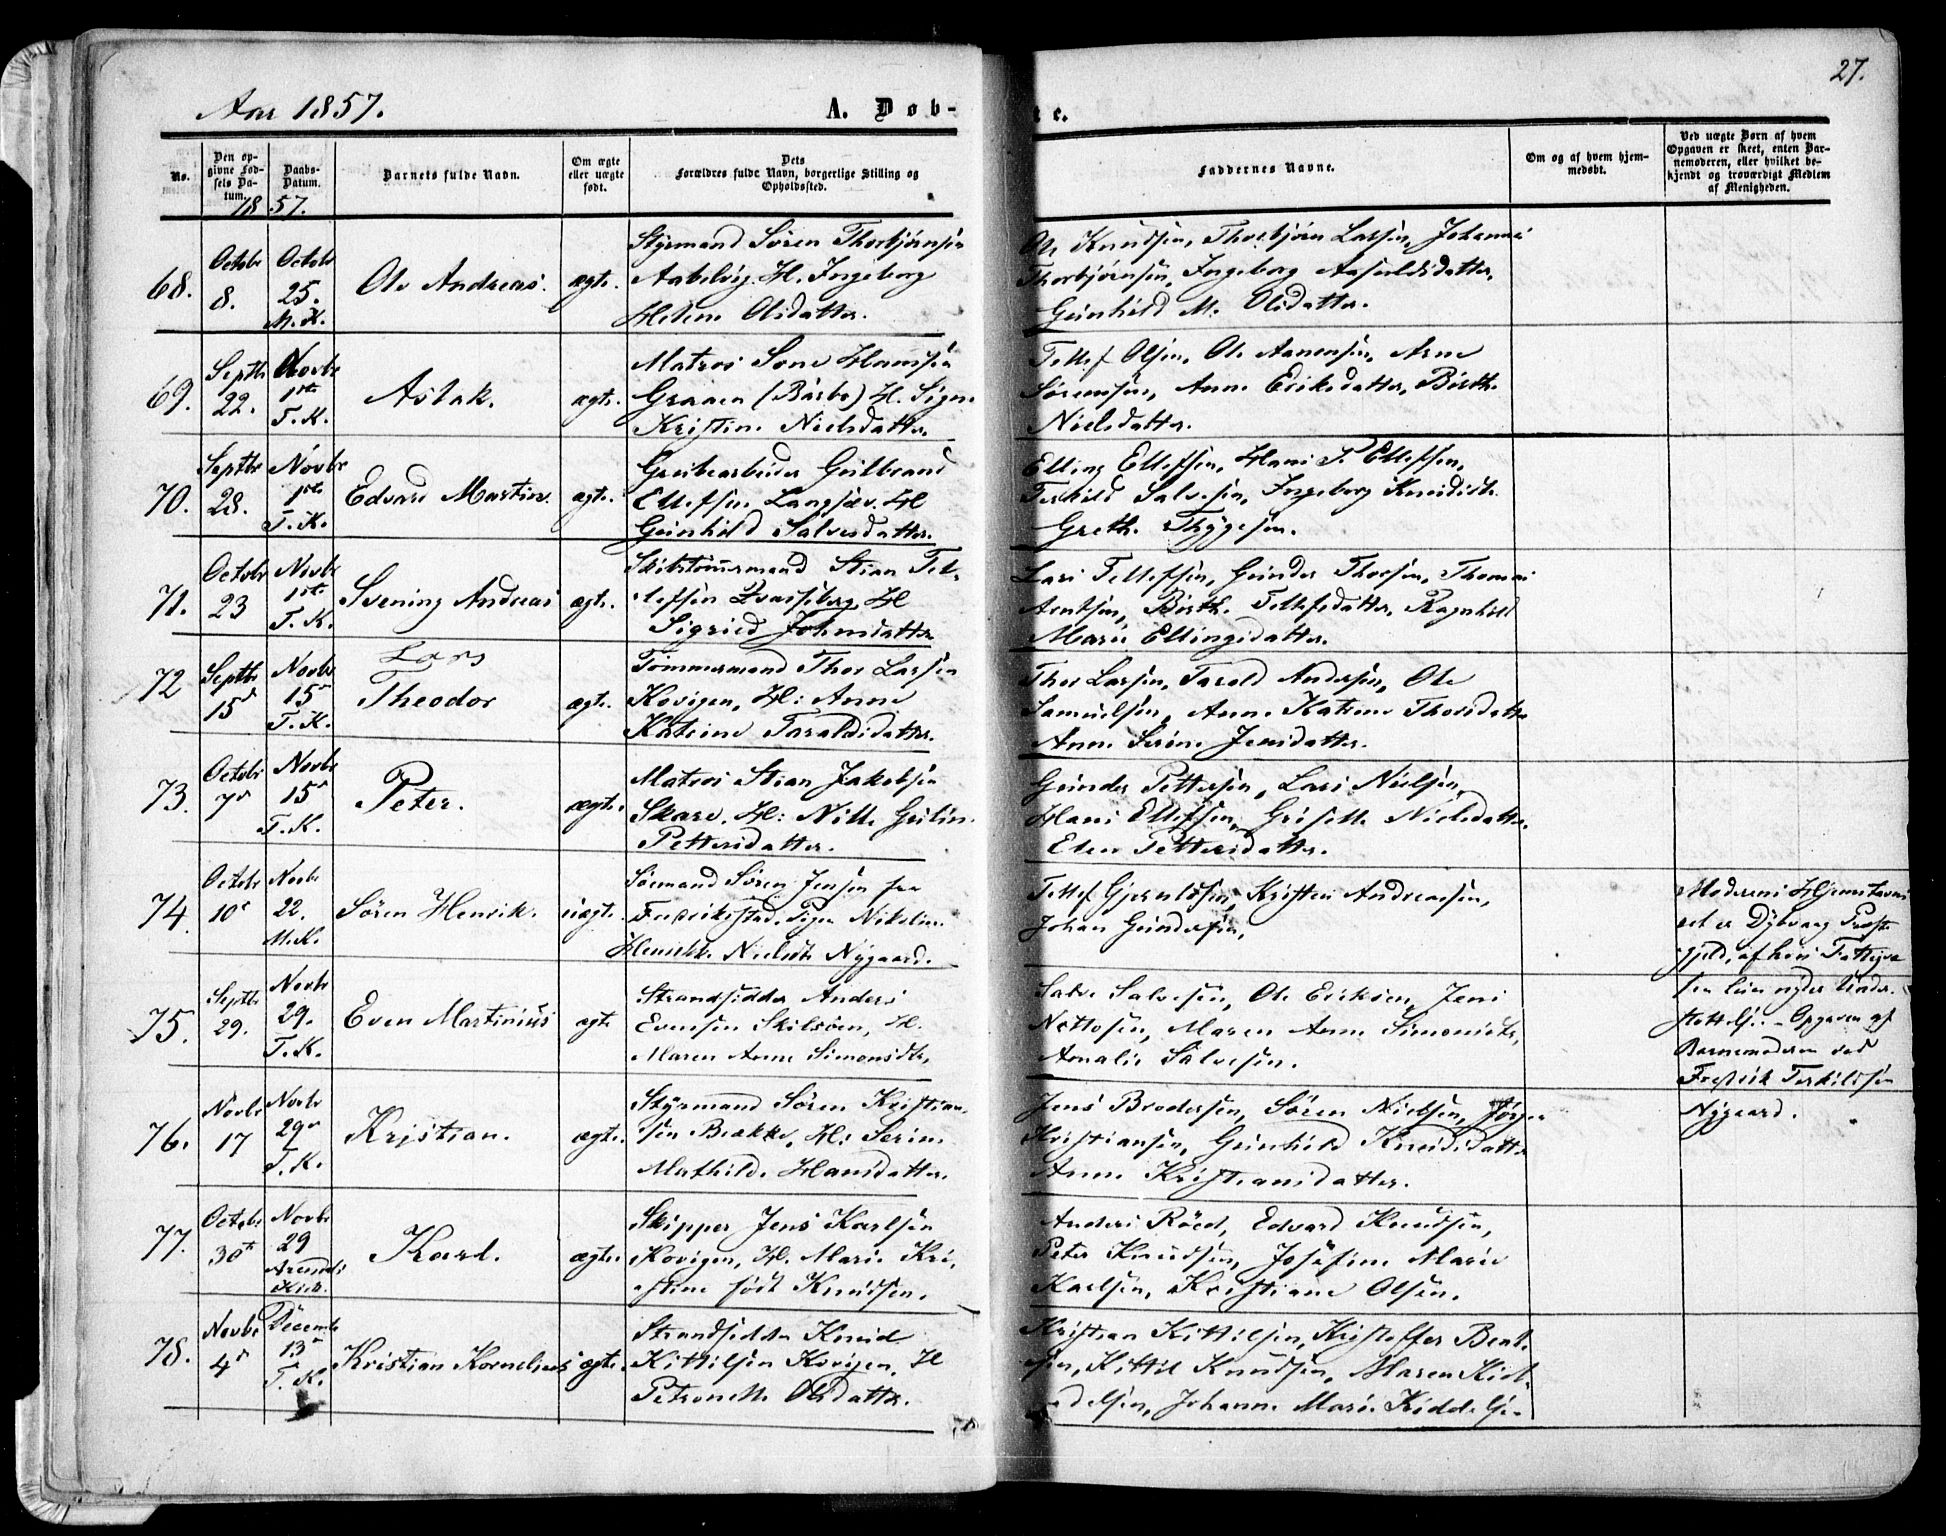 27.
Aar 1857.
A. Døb-
te.
No.
Den opgivne Fødsels Datum.
Daabs-Datum.
Barnets fulde Navn.
Om ægte eller uægte født.
Dets Forældres fulde Navn, borgerlige Stilling og Opholdssted.
Faddernes Navne.
Om og af hvem hjemmedøbt.
Ved uægte Børn af hvem Opgaven er skeet, enten Barnemoderen, eller hvilket bekjendt og troværdigt Medlem af Menigheden.
1857.
68.
Octobr 8.
Octobr 25. M. K.
Ole Andreas.
ægte.
Styrmand Søren Thorbjørnsen
Aabelvig. H. Ingeborg
Helene Olsdatter.
Ole Knudsen, Thorbjørn Larsen, Johannes
Thorbjørnsen, Ingeborg Aasuldsdatter,
Gunhild M. Olsdatter.
69.
Septbr 22.
Novbr 1ste T. K.
Aslak.
ægte.
Matros Hansen
Graaen (Barbo) H. Signe
Kristine Nielsdatter.
Tellef Olsen, Ole Aanonsen, Arne
Sørensen, Anne Eriksdatter, Birthe
Nielsdatter.
70.
Septbr 28.
Novbr 1ste T. K.
Edvard Martin.
ægte.
Grubearbeider Gulbrand
Ellefsen Langsæv. H
Gunhild Salvesdatter.
Elling Ellefsen, Hans P. Ellefsen,
Terkild Salvesen, Ingeborg Knudsdtr.
Grethe Thygesen.
71.
Octobr 23
Novbr 1ste T. K.
Svening Andreas
ægte.
Skibstømmermand Stian Tel-
lefsen H
Sigried Johnsdatter
Lars Tellefsen, Gunder Thorsen, Thomas
Arntsen, Birthe Tellefsdatter, Ragnhild
Marie Ellingsdatter.
72
Septbr 15de
Novbr 15de T. K.
Lars
Theodor
ægte.
Tømmermand Thor Larsen
Kovigen, H: Anne
Katrine Taraldsdatter.
Thor Larsen, Tarald Andersen, Ole
Samuelsen, Anne Katrine Thorsdatter
Anne Serine Jensdatter.
73.
Octobr 7de
Novbr 15de T. K.
Peter.
ægte.
Matros Stian Jakobsen
Skare. H:
Pettersdatter.
Gunder Pettersen, Lars Nielsen,
Hans Ellefsen, Grisette Nielsdatter,
Elen Pettersdatter.
74.
Octobr 10de
Novbr 22. M. K.
Søren Henrik.
uægte.
Sømand Søren Jensen fra
Fredrikstad. Pige Nikoline
Henrikke Nielsdtr Nygaard.
Tellef Gjeruldsen, Kristen Andreasen,
Johan Gundersen,
Moderens Hjemstavns
ret er Dybvaag Præste
gjeld, af hvis Fattigvæ
sen hun nyder Under-
støttelse. Opgaven af
Barnemoderen ved
Fredrik Terkildsen
Nygaard.
75.
Septbr 29.
Novbr 29. T. K.
Even Martinius
ægte
Strandsidder Anders
Evensen Skilsøen, H.
Maren Anne Simonsdtr.
Salve Salvesen, Ole Eriksen, Jens
Nottosen, Maren Anne Simonsdtr,
Amalie Salvesen.
76.
Novbr 17
Novbr 29de T. K.
Kristian.
ægte.
Styrmand Søren Kristian-
sen Brække, H: Serine
Mathilde Hansdatter.
Jens Brodersen, Søren Nielsen, Jørgen
Kristiansen, Gunhild Knudsdatter
Anne Kristiansdatter.
77.
Octobr 30te
Novbr 29 Arendals Kirke.
Karl.
ægte.
Skipper Jens Karlsen
Kovigen, H. Marie Kri-
stine født Knudsen.
Anders Röed, Edvard Knudsen,
Peter Knudsen, Josefine Marie
Karlsen, Kristiane Olsen.
78.
Novbr 4de
Decembr 13de T. K.
Kristian Kornelius
ægte.
Strandsidder Knud
Kittilsen Kovigen, H
Petronelle Olsdatter.
Kristian Kittilsen, Kristoffer Bent-
sen, Kittil Knudsen, Maren Kid-
delsen, Johanne Marie